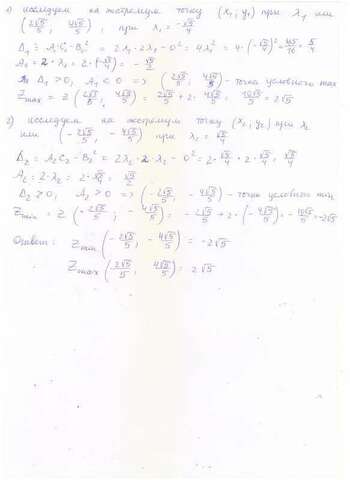 1) исследуем на экстремум точку (x₁; y₁) при λ₁ или
(2√5/5; 4√5/5), при x₁ = -√5/4
Δ₁ = A₁C₁ - B₁² = 2λ₁ · 2λ₁ - 0² = 4λ₁² = 4 · (-√5/4)² = 4·5/16 = 5/4
A₁ = 2 · λ₁ = 2 · (-√5/4) = -√5/2
Δ₁ > 0, A₁ < 0 => (2√5/5; 4√5/5) - точка условного max
Z max = Z (2√5/5; 4√5/5) = 2√5/5 + 2 · 4√5/5 = 10√5/5 = 2√5
2) исследуем на экстремум точку (x₂; y₂) при λ₂
или (-2√5/5; -4√5/5) при x₁ = √5/4
Δ₂ = A₂C₂ - B₂² = 2λ₂ · 2 · λ₂ - 0² = 2 · √5/4 · 2 · √5/4 =
A₂ = 2 · λ₂ = 2 · √5/4 = √5/2
B₂ > 0, A₂ > 0 => (-2√5/5; -4√5/5) - точка условного min
Z min = Z (-2√5/5; -4√5/5) = -2√5/5 + 2 · (-4√5/5) = -10√5/5 = -2√5
Ответ: Z min (-2√5/5; -4√5/5) = -2√5
Z max (2√5/5; 4√5/5) = 2√5